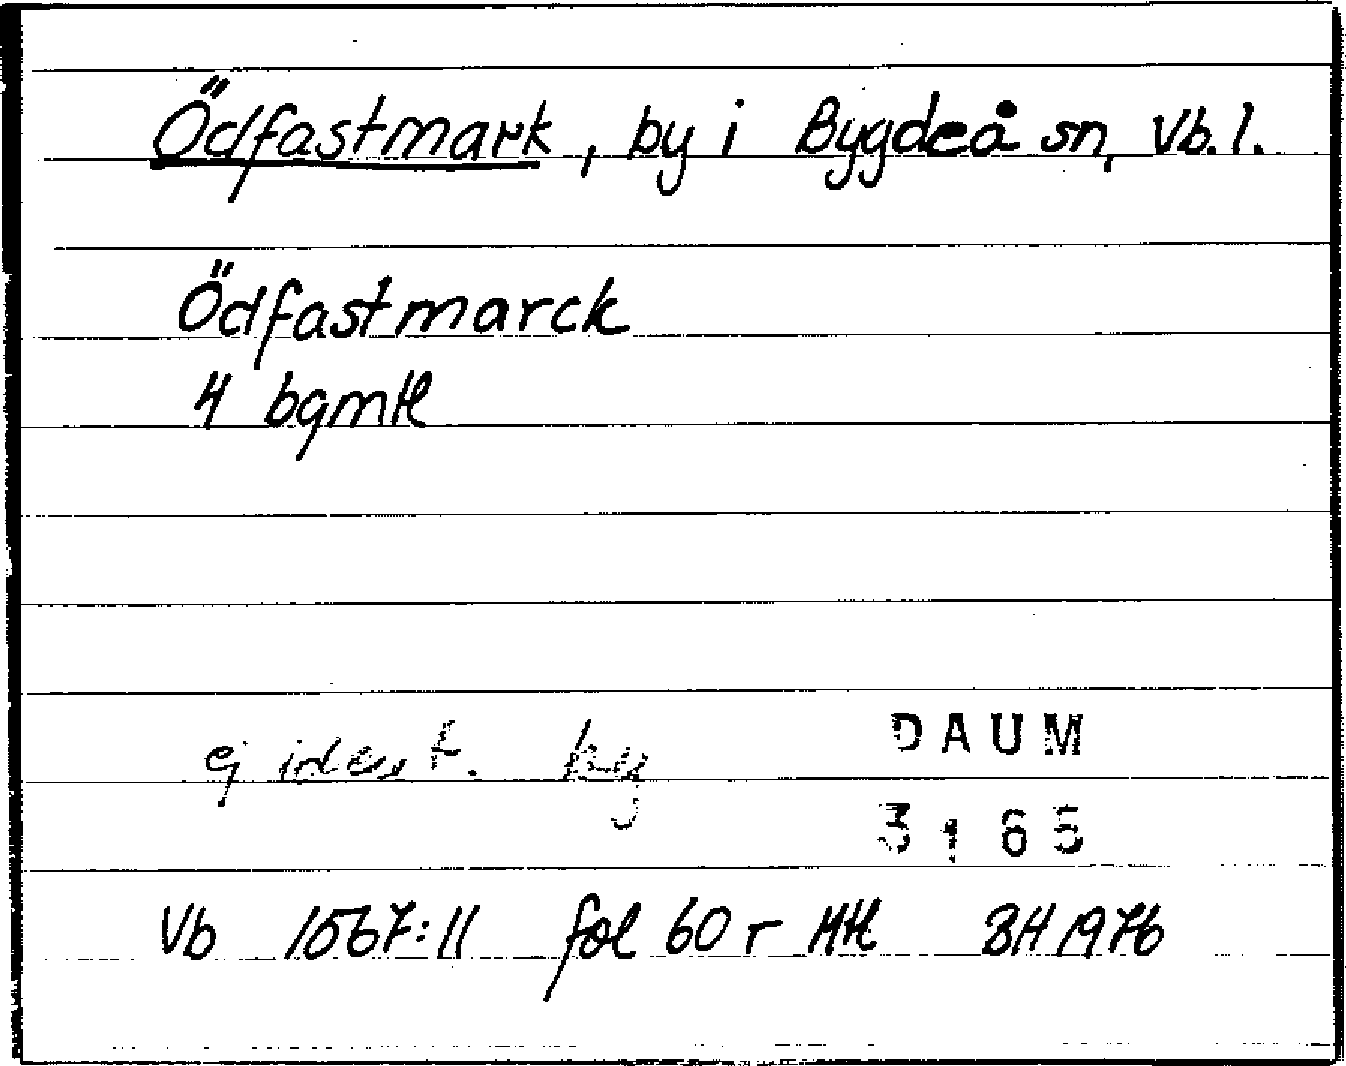 Ödfastmark, by i Bygdeå sn, Vb. l.
Ödfastmarck
4 bqmtl
ej ident. by
DAUM
3165
Vb 1567:11 fol 60 r Mtl BH 1976